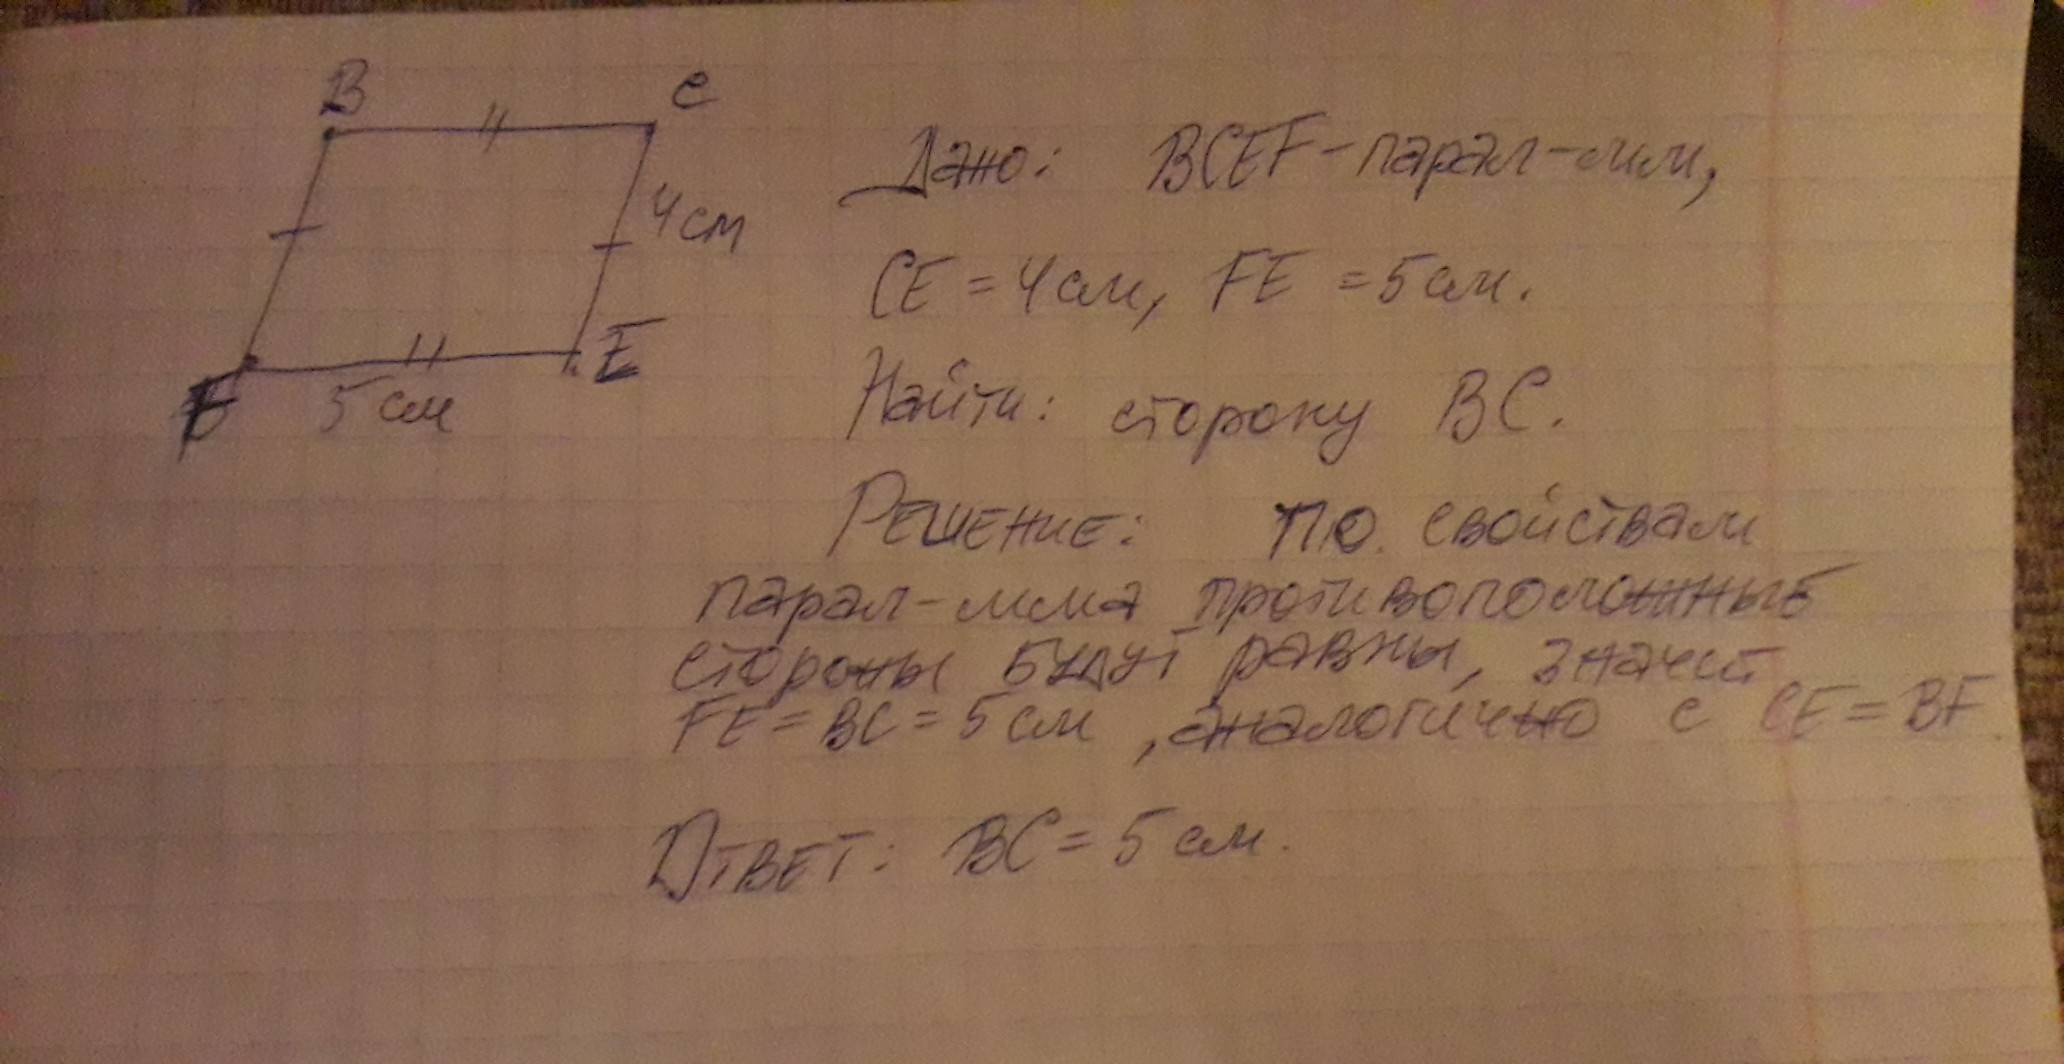 B C
4 см
F 5 см E
Дано: BCEF - парал-мм,
CE = 4 см, FE = 5 см.
Найти: сторону BC.
Решение: по свойствам
парал-мма противоположные
стороны будут равны, значит
FE = BC = 5 см, аналогично с CE = BF
Ответ: BC = 5 см.